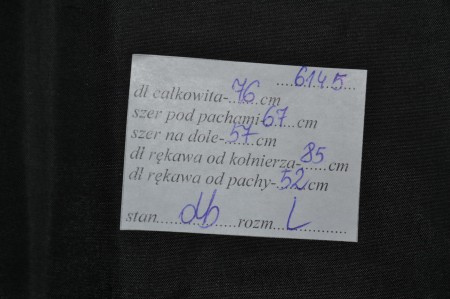 ......6145...
dł całkowita-..76..cm
szer pod pachami-67...cm
szer na dole-..57...cm
dł rękawa od kołnierza-..85...cm
dł rękawa od pachy-.52.cm
stan......db......rozm..L..........